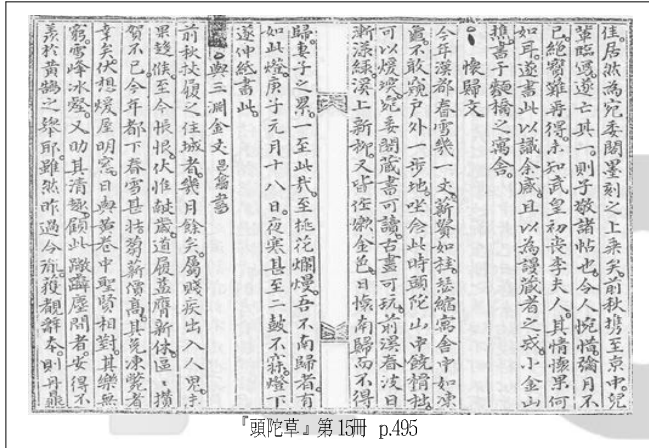 佳居然爲宛委閣墨刻之上乘矣前秋携至京中兒
輩臨寫遂亡其一則子敬諸帖也令人惋惜彌月不
已絶寶難再得未知武皇初喪李夫人其情懷果何
如耳遂書此以識余感且以爲謾藏者之戒小金山
樵書于麵橋之寓舍
懷歸文
今年漢都春雪幾一丈薪芻如桂瑟縮寓舍中如凍
鱉不敢窺戶外一步地坐念此時頭陀山中饒榾柮
可以煖堗宛委閣藏書可讀古畫可玩前溪春波日
漸漾綠溪上新柳又皆作嫩金色日懷南歸而不得
歸妻子之累一至此哉至桃花爛熳吾不南歸者有
如此燈庚子元月十八日夜寒甚至二鼓不寐燈下
遂伸紙書此
與三淵金丈昌翕書
前秋杖屨之住城者幾月餘矣屬賤疾出入人鬼未
果趍候至今悵恨伏惟獻歲道履益膺新休區〻攢
賀不已今年都下春雪甚桂蒭薪價高其免凍斃者
幸矣伏想煖屋明窓日與黃卷中聖賢相對其樂無
窮雪峰氷壑又助其清趣顧此塵閙者安得不
羨於黃鵠之擧耶雖然昨過令胤獲覩辭本則丹鼎
『頭陀草』第15冊 p.495